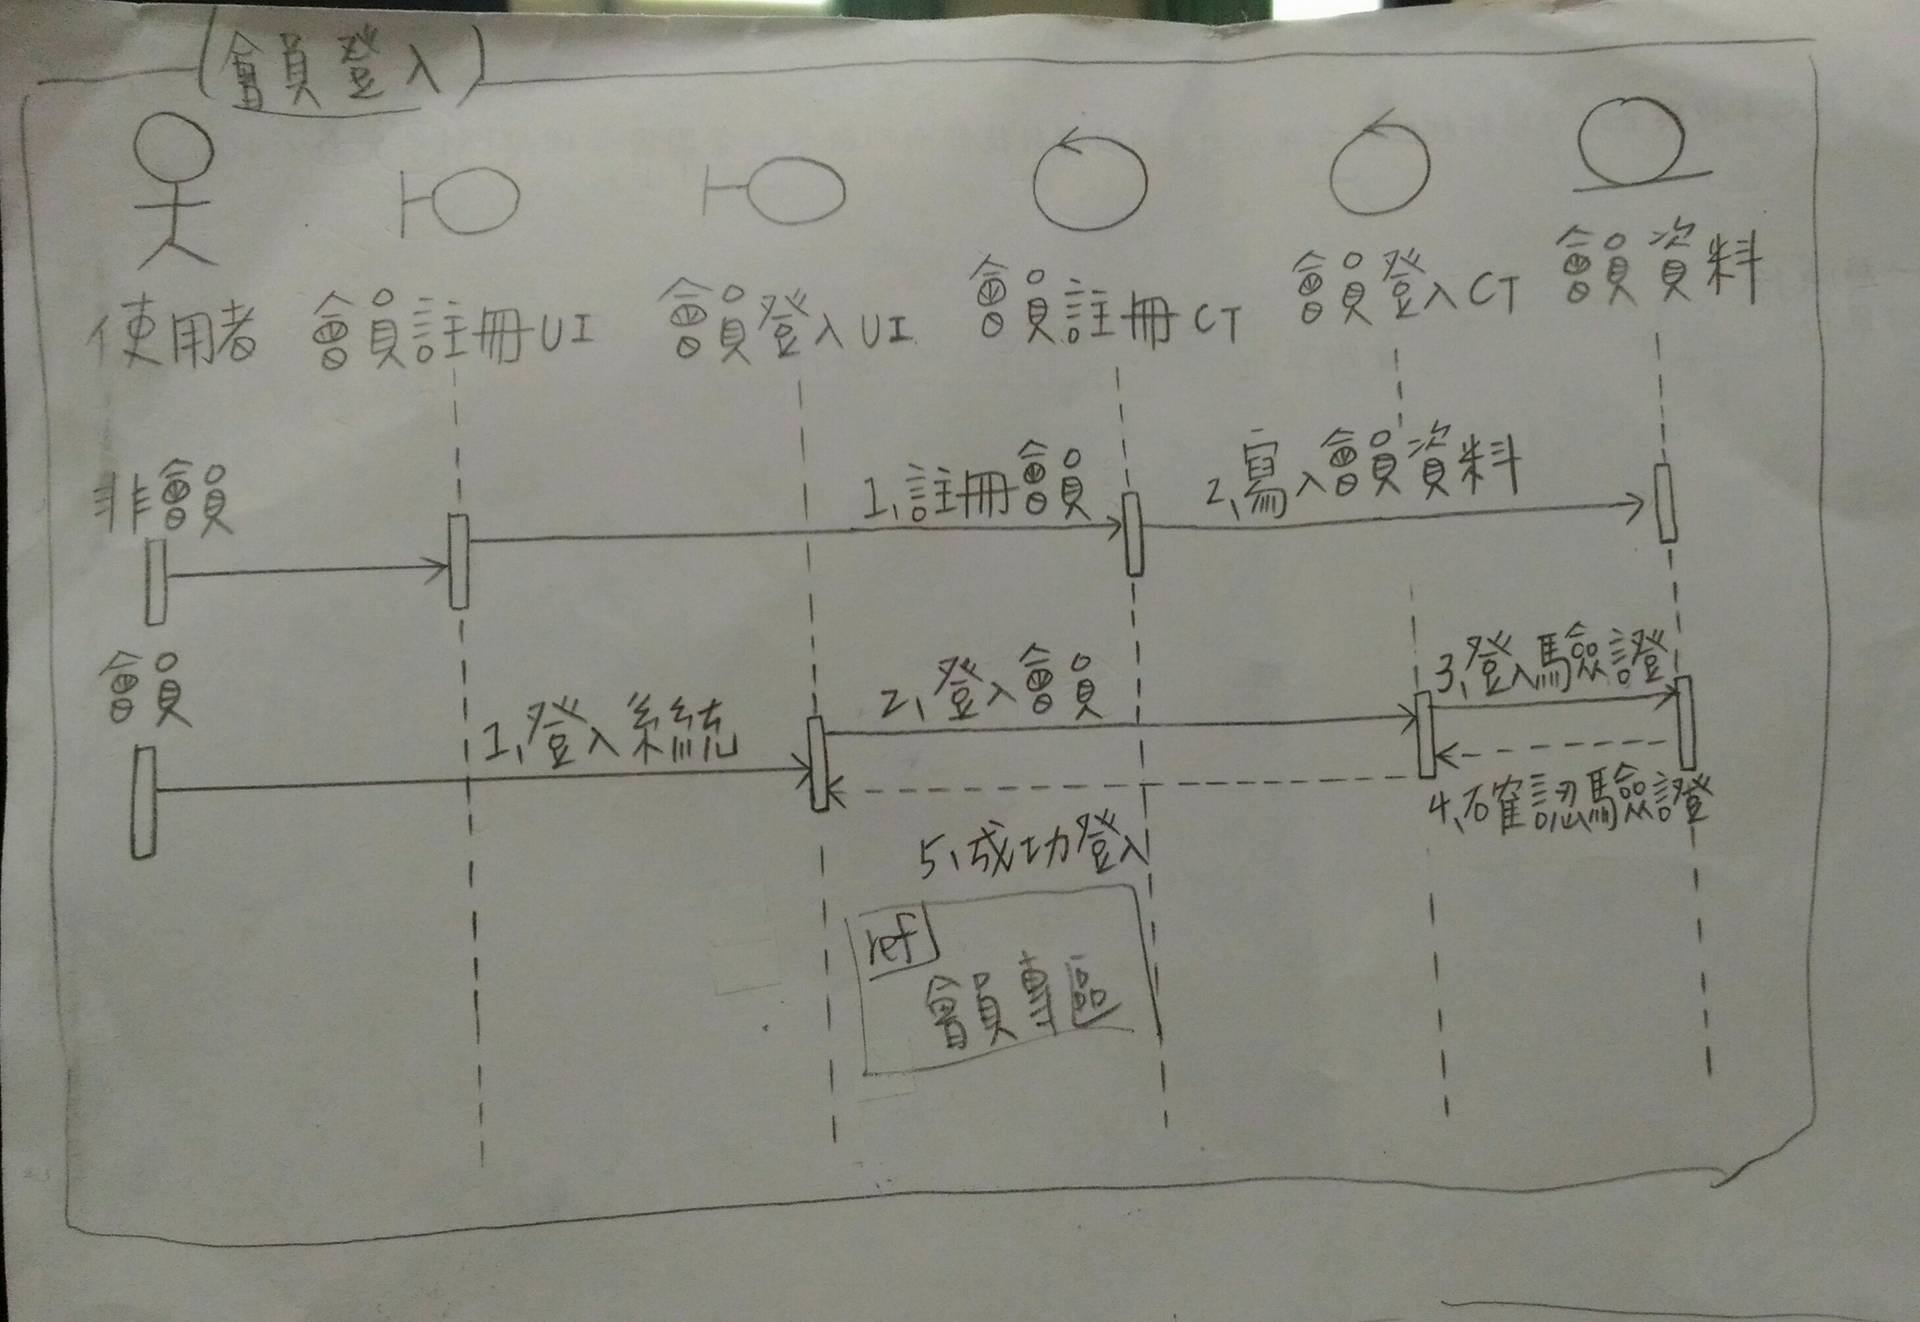 (會員登入)
使用者 會員註冊UI 會員登入UI 會員註冊CT 會員登入CT 會員資料
非會員
1、註冊會員
2、寫入會員資料
會員
1、登入系統
2、登入會員
3、登入驗證
4、確認驗證
5、成功登入
ref
會員專區